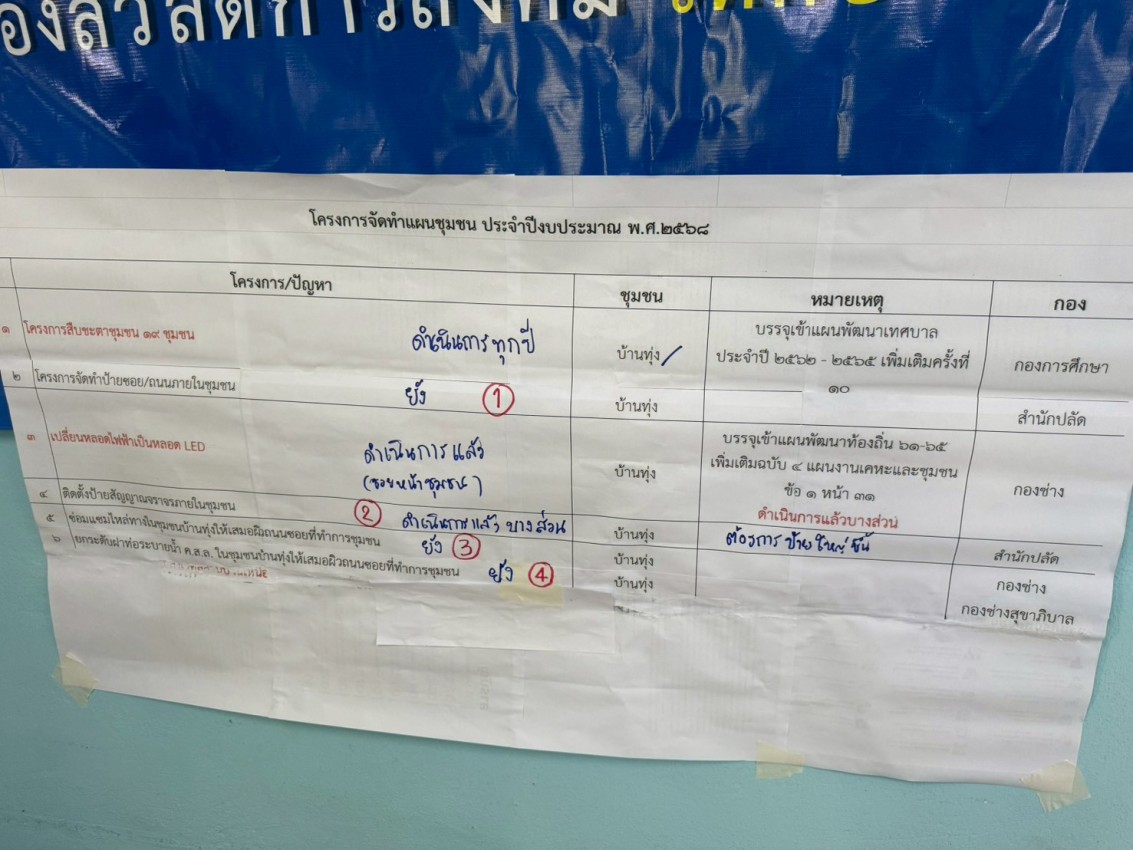 องสวัสดิการสังคม
โครงการจัดทำแผนชุมชน ประจำปีงบประมาณ พ.ศ.๒๕๖๘
โครงการ/ปัญหา ชุมชน หมายเหตุ กอง
๑ โครงการสืบชะตาชุมชน ๑๙ ชุมชน ดำเนินการทุกปี บ้านทุ่ง /
บรรจุเข้าแผนพัฒนาเทศบาล
ประจำปี ๒๕๖๒ - ๒๕๖๕ เพิ่มเติมครั้งที่
๑๐
กองการศึกษา
๒ โครงการจัดทำป้ายซอย/ถนนภายในชุมชน ยัง 1 บ้านทุ่ง สำนักปลัด
๓ เปลี่ยนหลอดไฟฟ้าเป็นหลอด LED ดำเนินการแล้ว
(ซอยหน้าชุมชน)
บ้านทุ่ง
บรรจุเข้าแผนพัฒนาท้องถิ่น ๖๑-๖๕
เพิ่มเติมฉบับ ๔ แผนงานเคหะและชุมชน
ข้อ ๑ หน้า ๓๑
ดำเนินการแล้วบางส่วน
กองช่าง
๔ ติดตั้งป้ายสัญญาณจราจรภายในชุมชน 2 ดำเนินการแล้ว บางส่วน บ้านทุ่ง ต้องการป้ายใหญ่ขึ้น สำนักปลัด
๕ ซ่อมแซมไหล่ทางในชุมชนบ้านทุ่งให้เสมอผิวถนนซอยที่ทำการชุมชน ยัง 3 บ้านทุ่ง กองช่าง
๖ ยกระดับฝาท่อระบายน้ำ ค.ส.ล. ในชุมชนบ้านทุ่งให้เสมอผิวถนนซอยที่ทำการชุมชน ยัง 4 บ้านทุ่ง กองช่างสุขาภิบาล